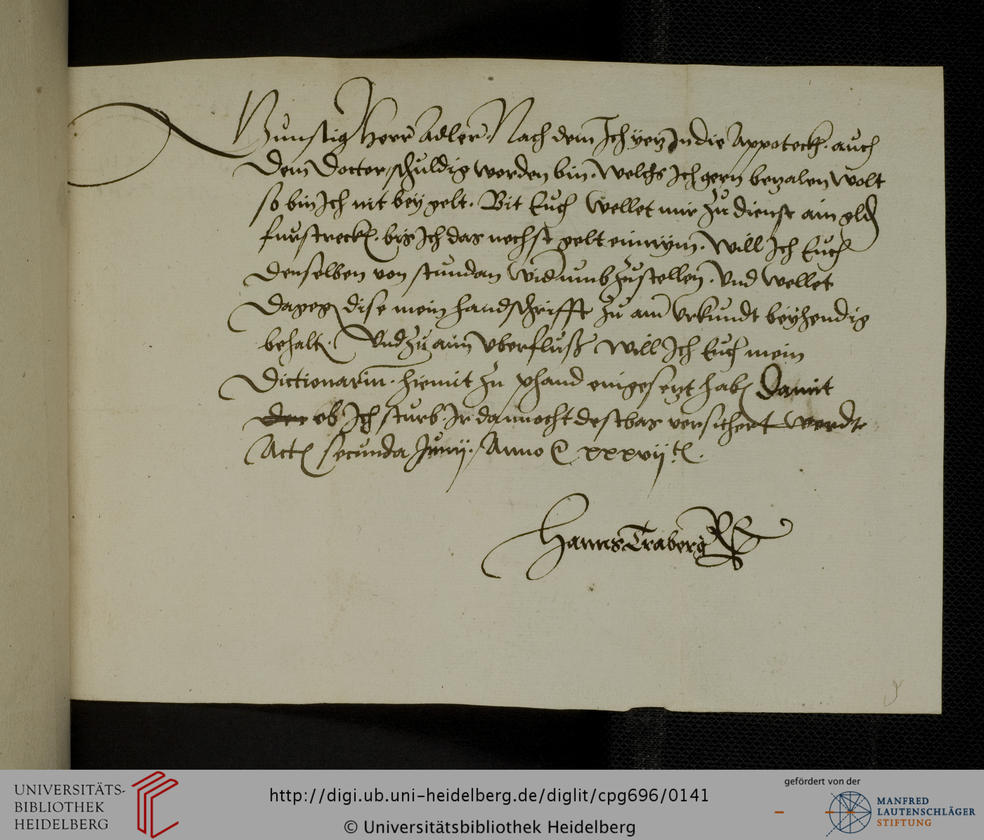 Gunstig Herr Adler. Nach dem Ich yetz In die Appoteck. auch
dem Doctor schuldig worden bin. welchs Ich gern bezalen wolt
so bin Ich nit bey gelt. Bit Euch wellet mir zu dienst ain
furstrecken. bis Ich das nechst gelt einnym. will Ich Euch
denselben von stundan widumb zustellen. Vnd wellet
dagegen dise mein handschrifft zu aim vrkundt beyhendig
behalten. Vnd zu aim vberfluß will Ich Euch mein
Dictionarium. hiemit zu phand eingesetzt haben damit
ob Ich sturb. Ir dannocht destbas versichert werdt
Actum secunda Junii. Anno xxxvii
Hanns Traberg
UNIVERSITÄTS-
BIBLIOTHEK
HEIDELBERG
http://digi.ub.uni-heidelberg.de/diglit/cpg696/0141
© Universitätsbibliothek Heidelberg
gefördert von der
MANFRED
LAUTENSCHLÄGER
STIFTUNG